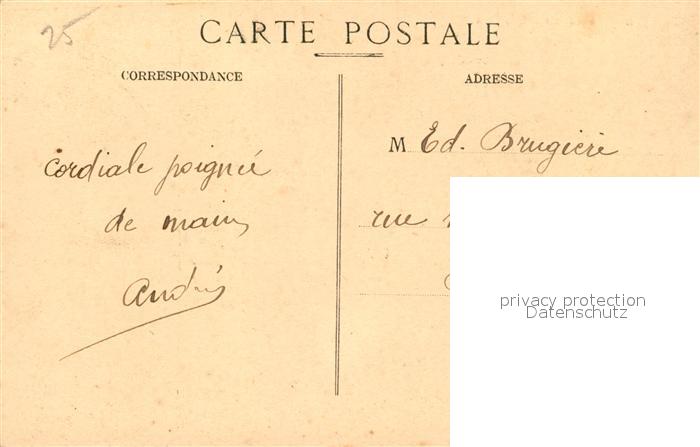 25
CARTE POSTALE
CORRESPONDANCE
ADRESSE
cordiale poignée
de main
André
M Ed. Brugière
rue
privacy protection
Datenschutz